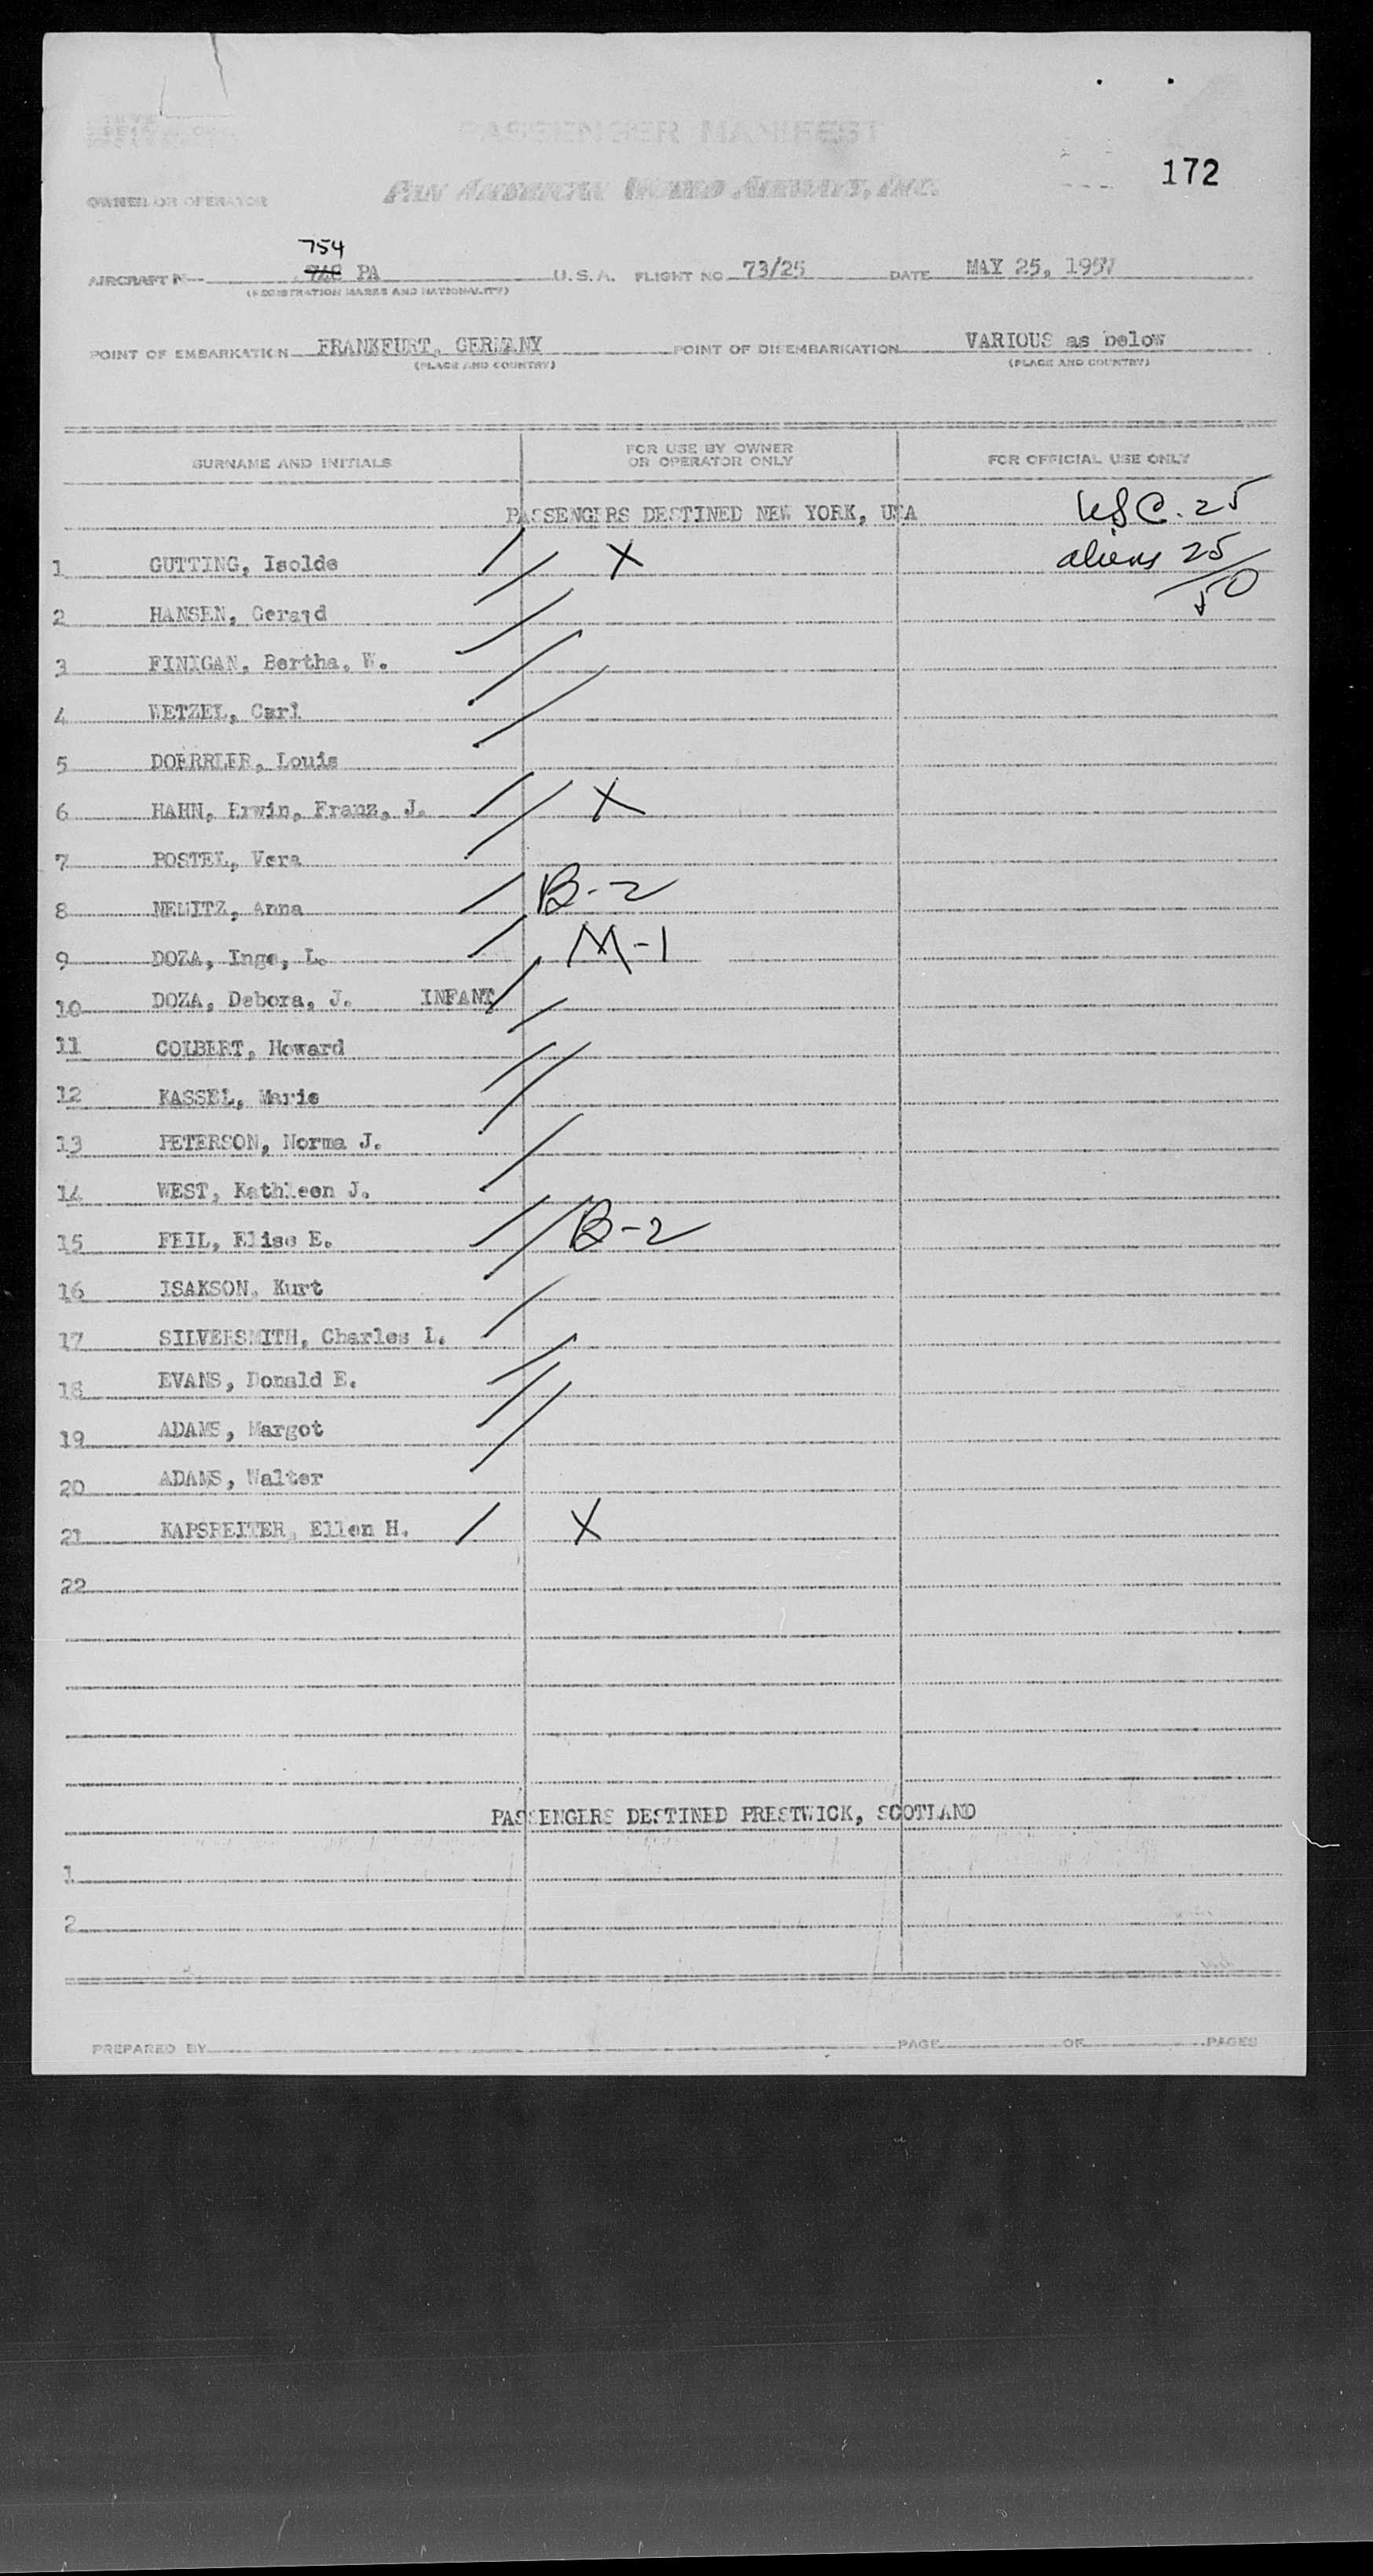 PASSENGER MANIFEST
172
PAN AMERICAN WORLD AIRWAYS, INC.
OWNER OR OPERATOR
754
AIRCRAFT N PA U.S.A. FLIGHT NO 73/25 DATE MAY 25, 1957
(REGISTRATION MARKS AND NATIONALITY)
POINT OF EMBARKATION FRANKFURT, GERMANY POINT OF DISEMBARKATION VARIOUS as below
(PLACE AND COUNTRY) (PLACE AND COUNTRY)
SURNAME AND INITIALS FOR USE BY OWNER OR OPERATOR ONLY FOR OFFICIAL USE ONLY
PASSENGERS DESTINED NEW YORK, USA USC. 25
1 GUTTING, Isolde X aliens 25
50
2 HANSEN, Gerard
3 FINIGAN, Bertha, W.
4 WETZEL, Carl
5 DOERRLER, Louis
6 HAHN, Erwin, Franz, J. X
7 POSTEL, Vera
8 NEMITZ, Anna B-2
9 DOZA, Inge, L. M-1
10 DOZA, Debora, J. INFANT
11 COLBERT, Howard
12 KASSEL, Marie
13 PETERSON, Norma J.
14 WEST, Kathleen J.
15 FEIL, Elise E. B-2
16 ISAKSON, Kurt
17 SILVERSMITH, Charles L.
18 EVANS, Donald E.
19 ADAMS, Margot
20 ADAMS, Walter
21 KAPSREITER, Ellen H. X
22
PASSENGERS DESTINED PRESTWICK, SCOTLAND
1
2
PREPARED BY PAGE OF PAGES